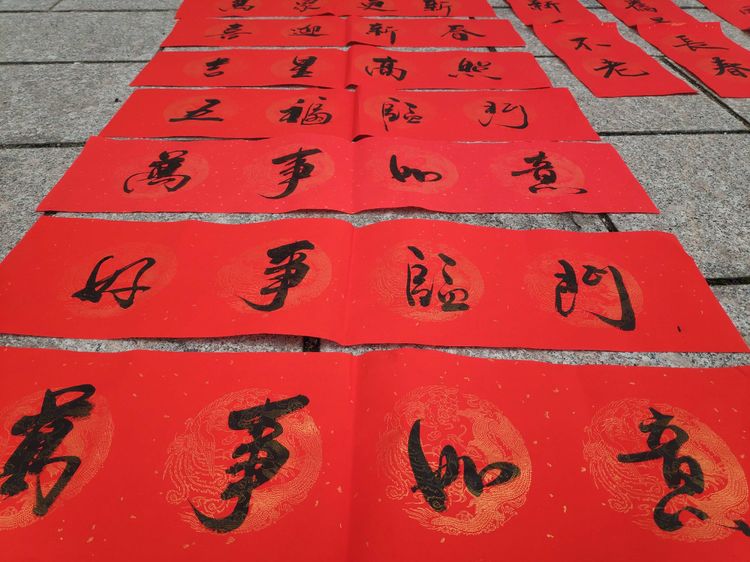 萬象更新
喜迎新春
吉星高照
五福臨門
萬事如意
好事臨門
萬事如意
不老
長春